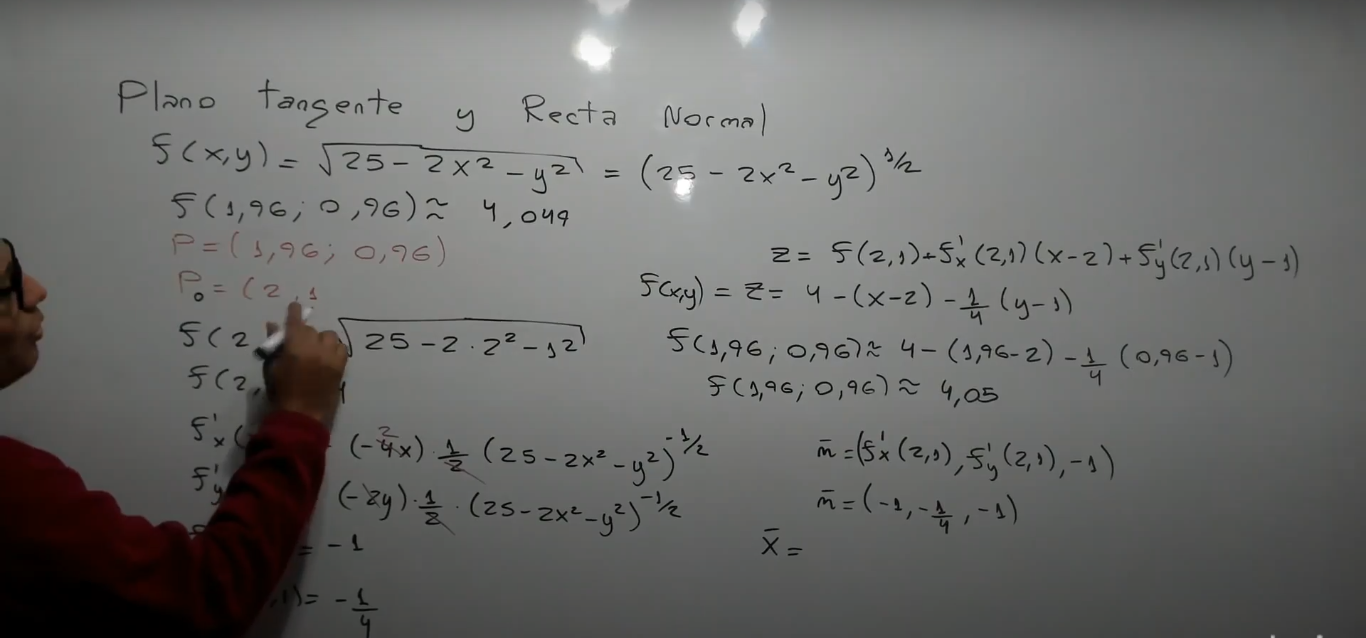 Plano tangente y Recta Normal
f(x,y) = √25 - 2x² - y² = (25 - 2x² - y²)^1/2
f(1,96; 0,96) ≈ 4,049
P = (1,96; 0,96)
P₀ = (2,1
f(2 √25 - 2 · 2² - 1²
f(2,
f'x( (-4x) · 1/2 (25 - 2x² - y²)^-1/2
2
f'y (-2y) · 1/2 · (25 - 2x² - y²)^-1/2
= -1
,1) = -1/4
z = f(2,1) + f'x(2,1)(x-2) + f'y(2,1)(y-1)
f(x,y) = z = 4 - (x-2) - 1/4 (y-1)
f(1,96; 0,96) ≈ 4 - (1,96-2) - 1/4 (0,96-1)
f(1,96; 0,96) ≈ 4,05
n̄ = (f'x(2,1), f'y(2,1), -1)
n̄ = (-1, -1/4, -1)
X̄ =